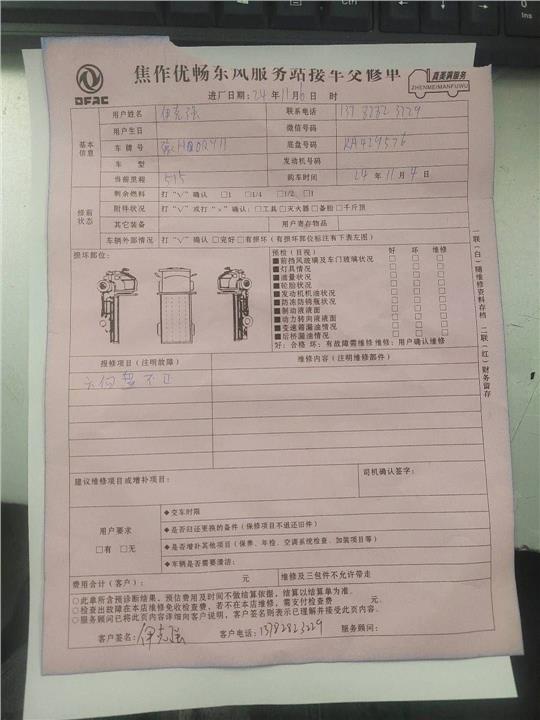 Ins
焦作优畅东风服务站接车交修单
DFAC
真美满服务
ZHENMEIMANFUWU
进厂日期：24 年 11 月 6 日 时
基本信息
用户姓名
联系电话 13782823229
用户生日 微信号码
车牌号 底盘号码 RA429576
车型 发动机号码
当前里程 515 购车时间 24 年 11 月 4 日
修前状态
剩余燃料 打"√"确认 □1 □1/4 □1/2 □1
附件状况 打"√"或打"×"确认：□工具 □灭火器 □备胎 □千斤顶
其它装备 用户寄存物品
车辆外部情况 打"√"确认 □完好 □有损坏（有损坏部位标注有下表左图）
损坏部位：
预检（目视） 好 坏 维修
■前挡风玻璃及车门玻璃状况 □ □ □
■灯具情况 □ □ □
■油量状况 □ □ □
■轮胎状况 □ □ □
■发动机机油状况 □ □ □
■防冻防锈瓶状况 □ □ □
■制动液液面 □ □ □
■动力转向液液面 □ □ □
■变速箱漏油情况 □ □ □
■后桥漏油情况 □ □ □
好：合格 坏：有故障需维修 维修：用户确认维修
一联（白）随维修资料存档 二联（红）财务留存
报修项目（注明故障） 维修内容（注明维修部件）
方向盘不正
建议维修项目或增补项目： 司机确认签字：
用户要求
□有 □无
◆交车时限
◆是否归还更换的备件（保修项目不退还旧件）
◆是否增补其他项目（保养、年检、空调系统检查、加装项目等）
◆车辆是否需要清洁：
费用合计（客户）： 元 维修及三包件不允许带走
○此单所含预诊断结果，预估费用及时间不做结算依据，结算以结算单为准。
○检查出故障在本店维修免收检查费，若不在本店维修，需支付检查费 元。
○服务顾问已将此页内容详细向客户说明，客户签名则表示已理解并接受此页内容。
客户签名： 客户电话：13782823229 服务顾问：